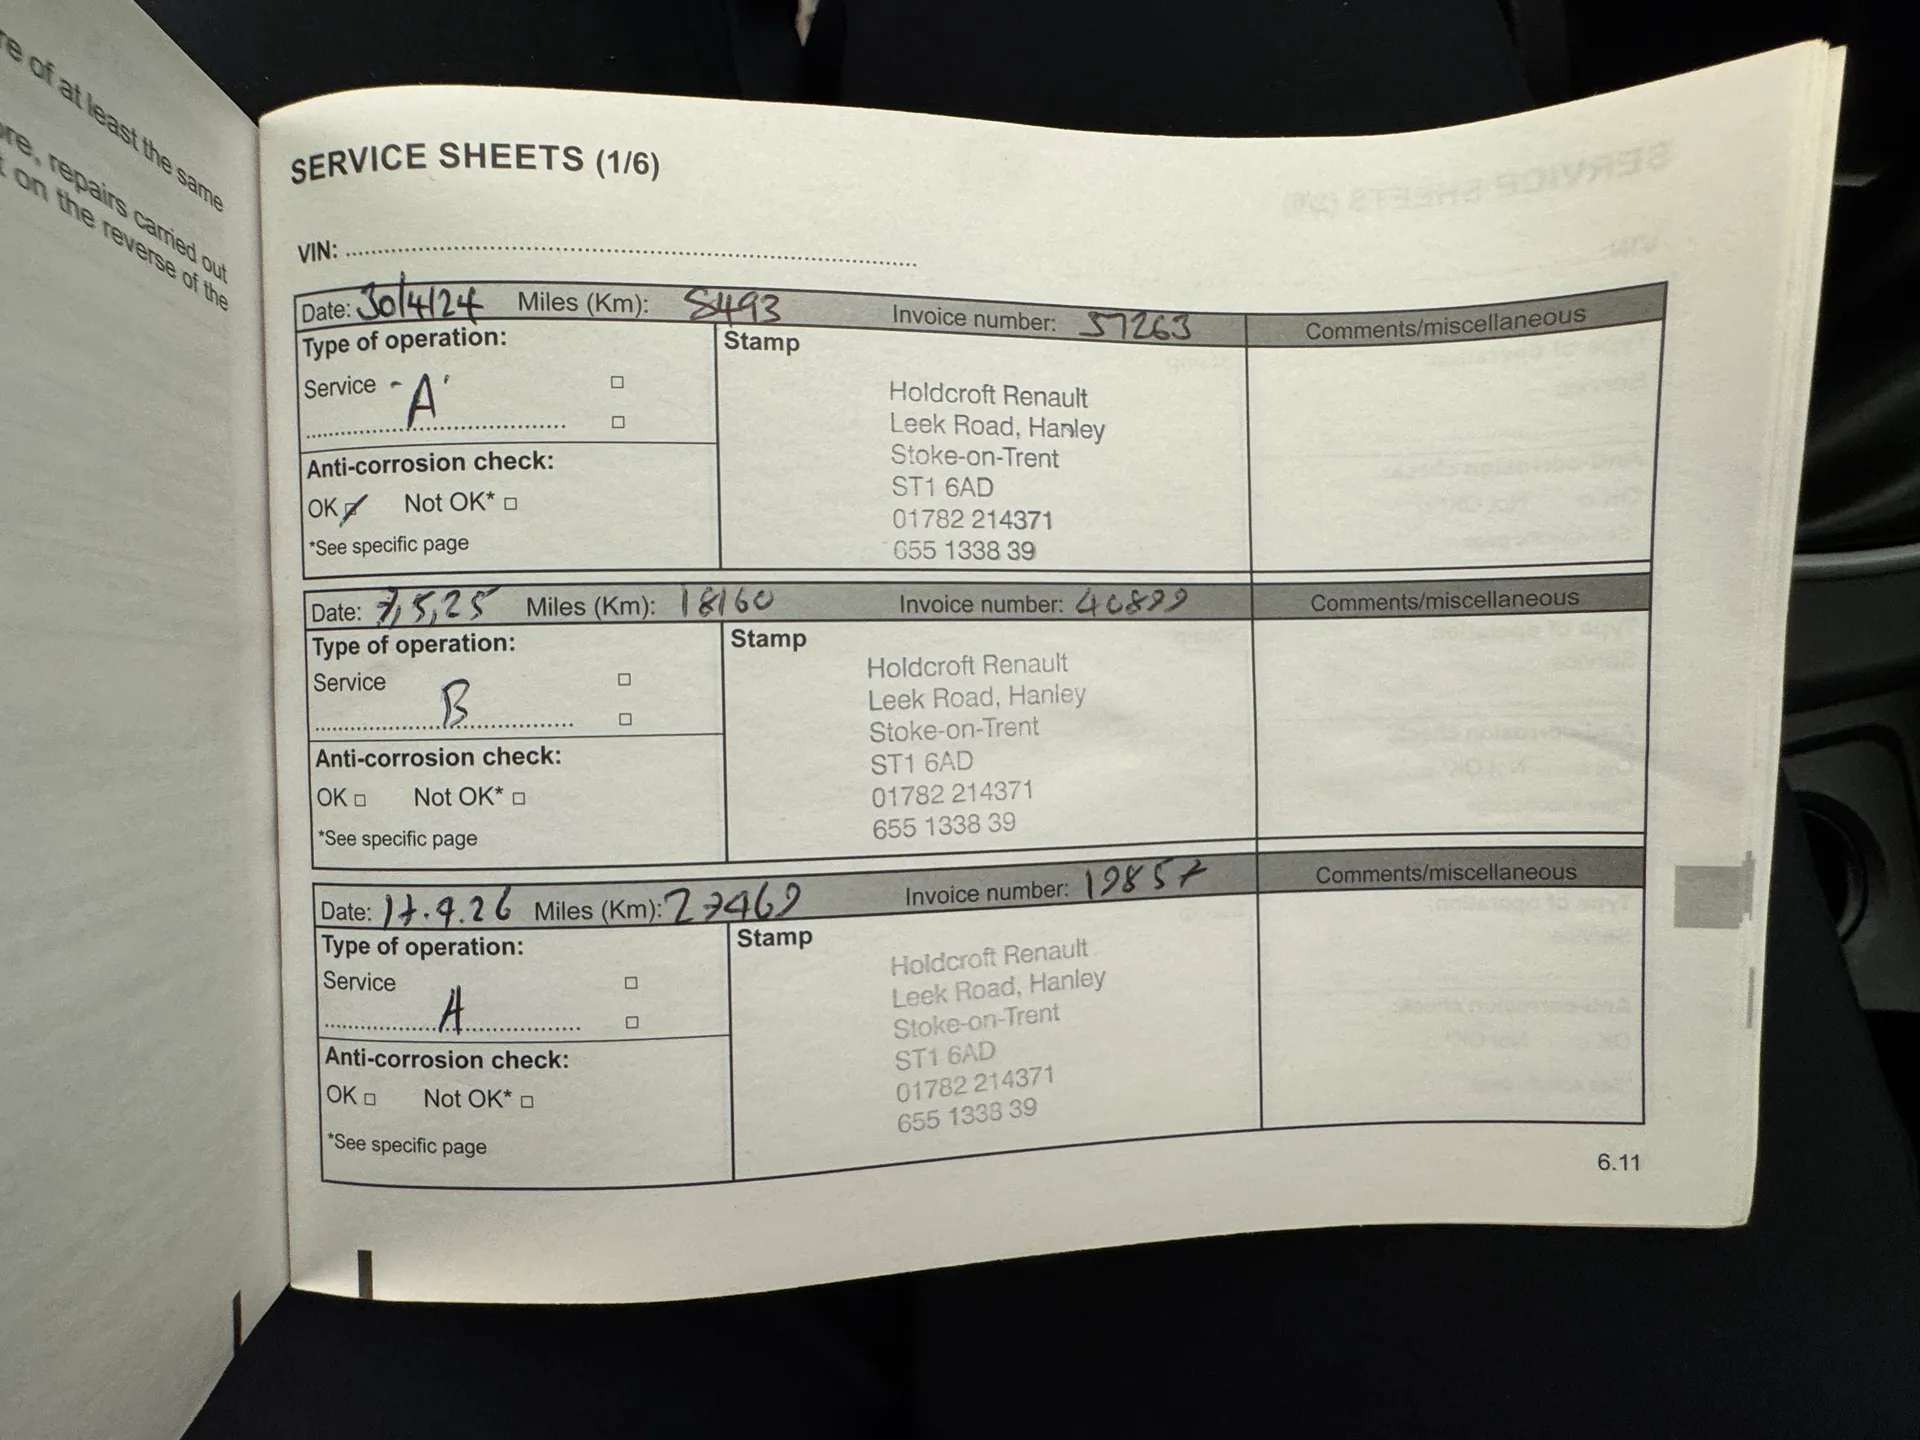 re of at least the same
ore, repairs carried out
t on the reverse of the
SERVICE SHEETS (1/6)
VIN:
Date: 30/4/24 Miles (Km): 8493 Invoice number: 37263 Comments/miscellaneous
Type of operation: Stamp
Service - 'A'
Anti-corrosion check:
OK Not OK*
*See specific page
Holdcroft Renault
Leek Road, Hanley
Stoke-on-Trent
ST1 6AD
01782 214371
655 1338 39
Date: 7,5,25 Miles (Km): 18160 Invoice number: 40899 Comments/miscellaneous
Type of operation: Stamp
Service
B
Anti-corrosion check:
OK Not OK*
*See specific page
Holdcroft Renault
Leek Road, Hanley
Stoke-on-Trent
ST1 6AD
01782 214371
655 1338 39
Date: 17.9.26 Miles (Km): 27469 Invoice number: 19857 Comments/miscellaneous
Type of operation: Stamp
Service
A
Anti-corrosion check:
OK Not OK*
*See specific page
Holdcroft Renault
Leek Road, Hanley
Stoke-on-Trent
ST1 6AD
01782 214371
655 1338 39
6.11